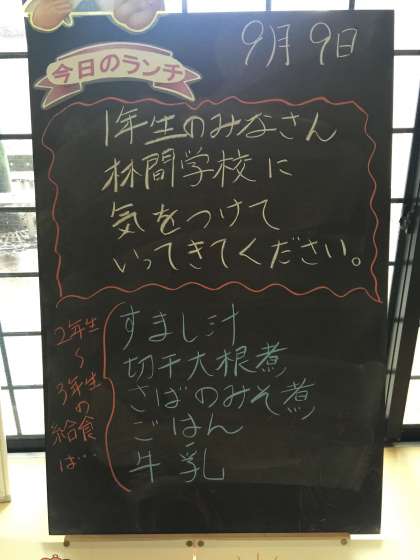 今日のランチ
9月9日
1年生のみなさん
林間学校に
気をつけて
いってきてください。
2年生
〜
3年生
の
給食
は…
すまし汁
切干大根煮
さばのみそ煮
ごはん
牛乳